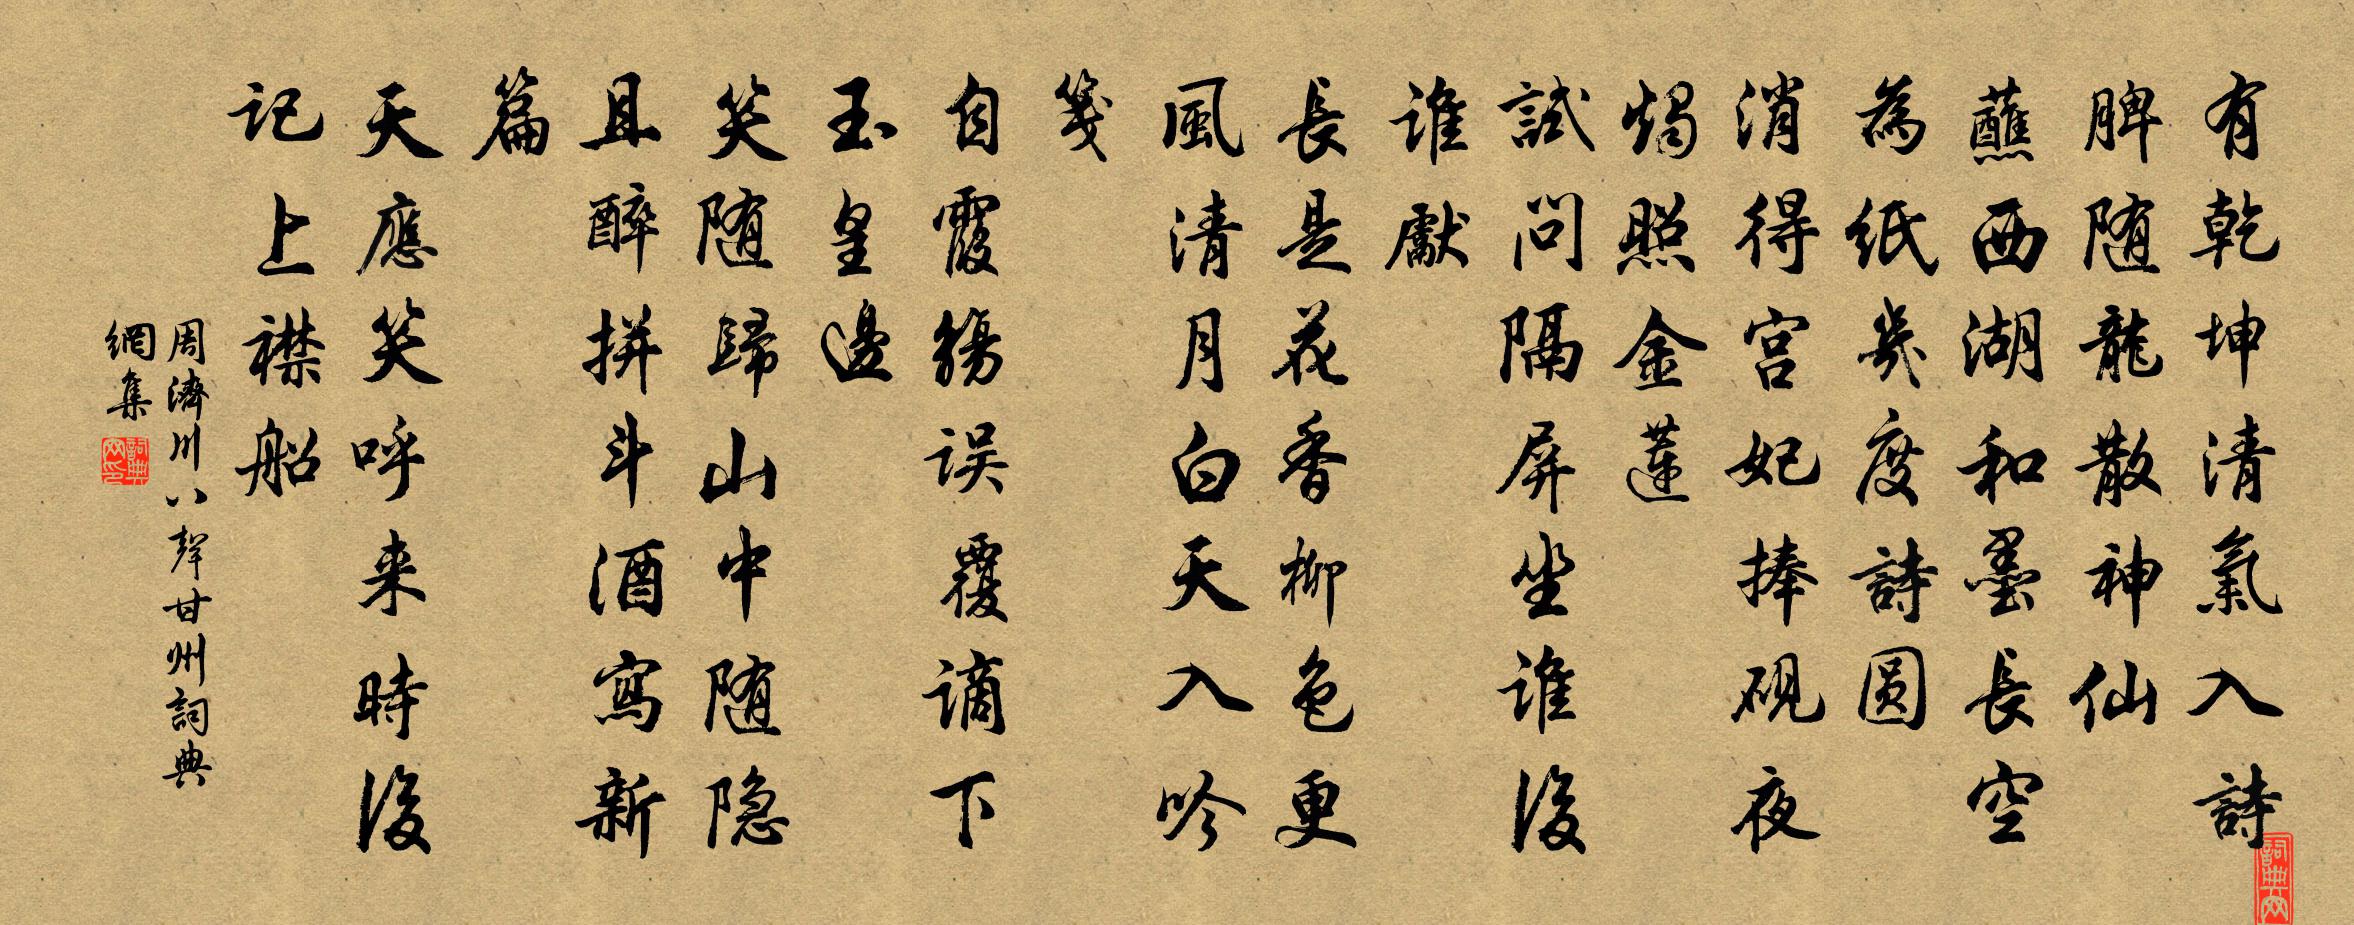 有乾坤清氣入詩
脾随龍散神仙
蘸西湖和墨長空
為紙幾度詩圆
消得宫妃捧砚夜
燭照金蓮
試問隔屏坐誰後
誰獻
長是花香柳色更
風清月白天入吟
箋
自霞觴误覆谪下
玉皇邊
笑随歸山中随隐
且醉拼斗酒寫新
篇
天應笑呼来時後
记上襟船
周濟川八聲甘州詞典
網集
詞典网
詞典网印